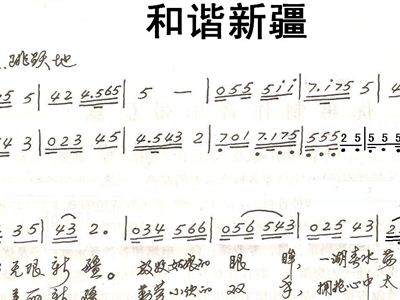 和谐新疆
跳跃地
5 5 | 4 2 4.565 | 5 — | 055 5ii | 7.i75 5 | 4
4 3 | 023 45 | 4.543 2 | 701 7.175 | 555 25 | 555
35 | 43 2. | 034 566 | 056 543 | 025 43 | 2
无限新疆。放牧姑娘的眼睛 一湖春水
新疆 勤劳小伙的双手, 拥抱心中太